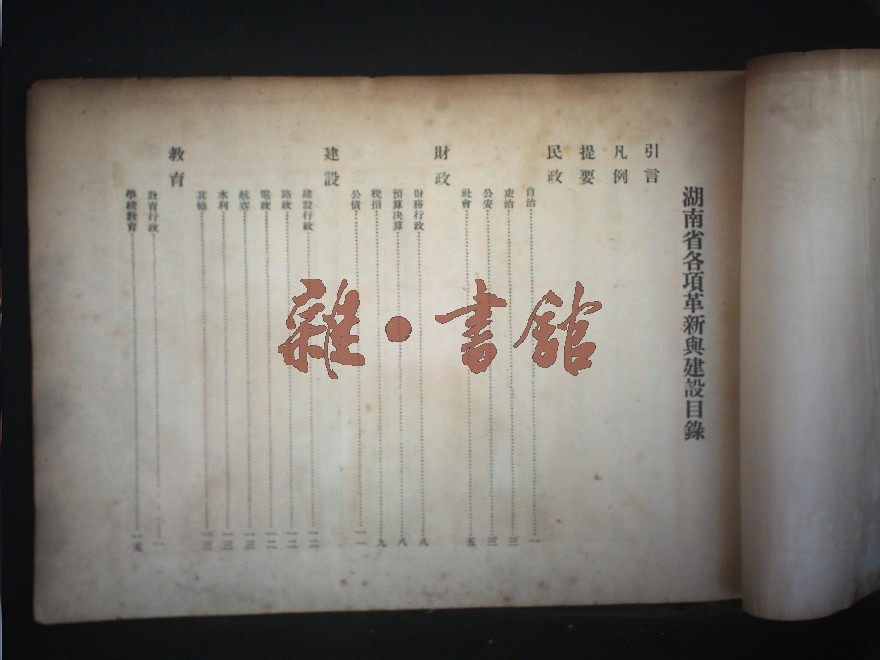 湖南省各項革新與建設目錄
引言
凡例
提要
民政
自治………一
吏治………三
公安………三
社會………五
財政
財務行政………八
預算決算………八
稅捐………九
公債………一一
建設
建設行政………一二
路政………一二
電政………一二
航空………一三
水利………一三
其他………一三
教育
教育行政………
學校教育………一五
雜·書館